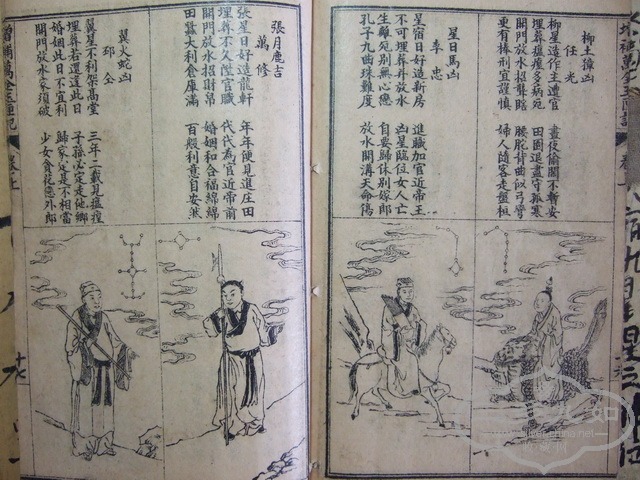 柳土獐凶
任光
柳星造作主遭官 晝夜偷閒不暫安
埋葬瘟㾮多病死 田園退盡守孤寒
開門放水招聾瞎 腰駝背曲似弓彎
更有棒刑宜謹慎 婦人隨客走盤桓
星日馬凶
李忠
星宿日好造新房 進職加官近帝王
不可埋葬并放水 凶星臨位女人亡
生離死別無心戀 自要歸休別嫁郎
孔子九曲珠難度 放水開溝天命傷
張月鹿吉
萬修
張星日好造龍軒 年年便見進庄田
埋葬不久陞官職 代代為官近帝前
開門放水招財帛 婚姻和合福綿綿
田蠶大利倉庫滿 百般利意自安然
翼火蛇凶
邳仝
翼星不利架高堂 三年二載見瘟㾮
埋葬若還逢此日 子孫必定走他鄉
婚姻此日不宜利 歸家定是不相當
開門放水家須破 少女貪花戀外郎
增補萬全玉匣記 卷上
九如